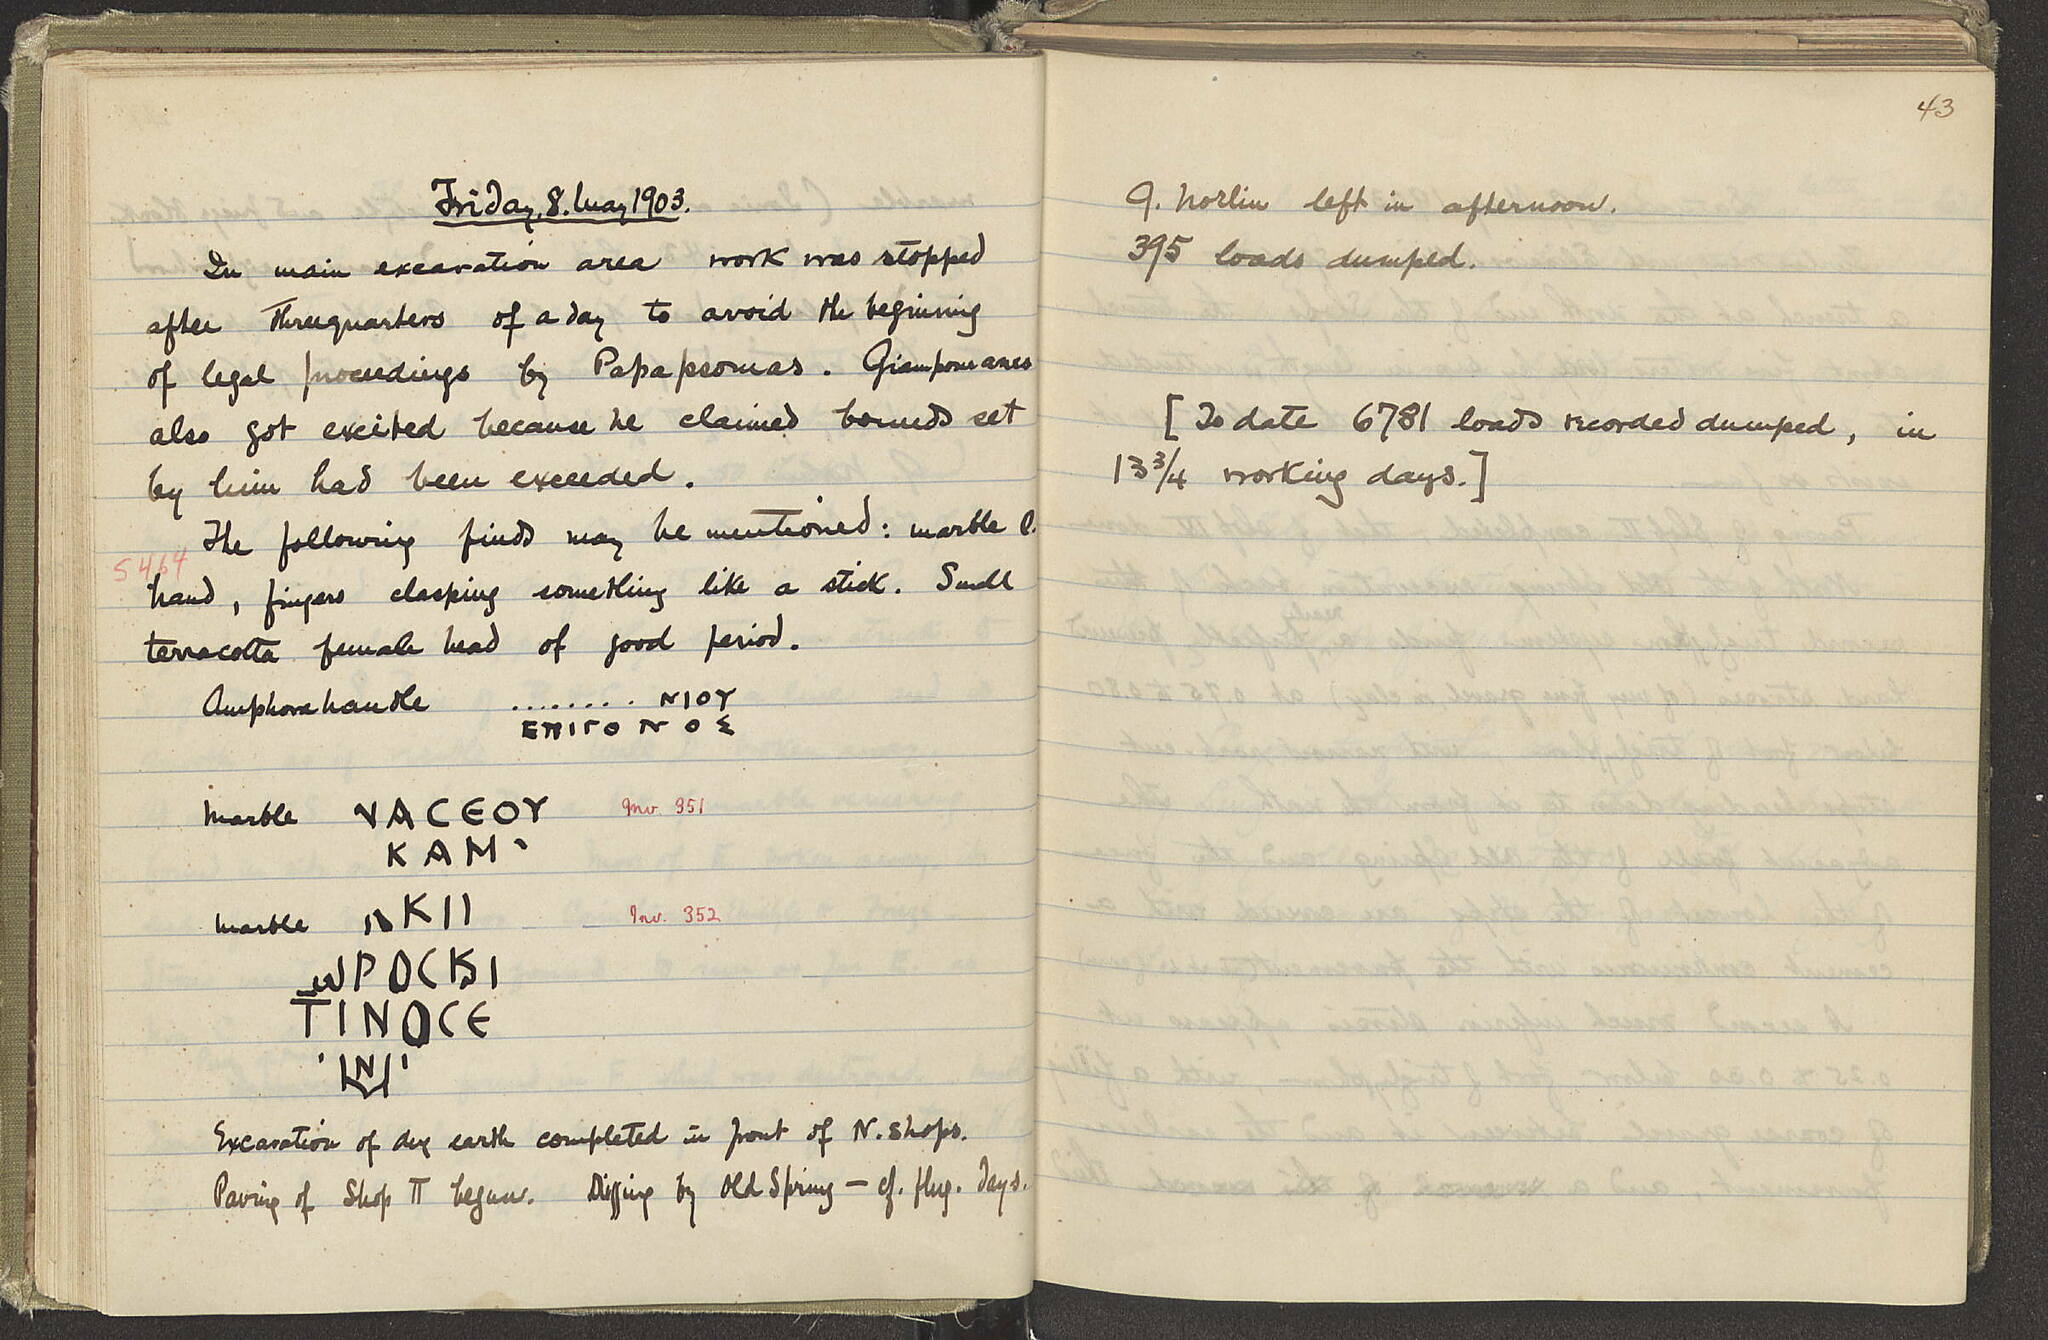 Friday, 8. May 1903.
In main excavation area work was stopped
after threequarters of a day to avoid the beginning
of legal proceedings by Papapsomas. Giampouranes
also got excited because he claimed bounds set
by him had been exceeded.
The following finds may be mentioned: marble l.
S 464
hand, fingers clasping something like a stick. Small
terracotta female head of good period.
Amphora handle ........ ΝΙΟΥ
ΕΠΙΓΟΝΟΣ
Marble ΝΑϹЄΟΥ Inv. 351
ΚΑΜ
Marble ΚΙΙ Inv. 352
ΡΟϹΚ
ΤΙΝΟϹЄ
Excavation of dry earth completed in front of N. shops.
Paving of Shop II begun. Digging by Old Spring — cf. flug. days.
43
G. Norlin left in afternoon.
395 loads dumped.
[To date 6781 loads recorded dumped, in
13 3/4 working days.]